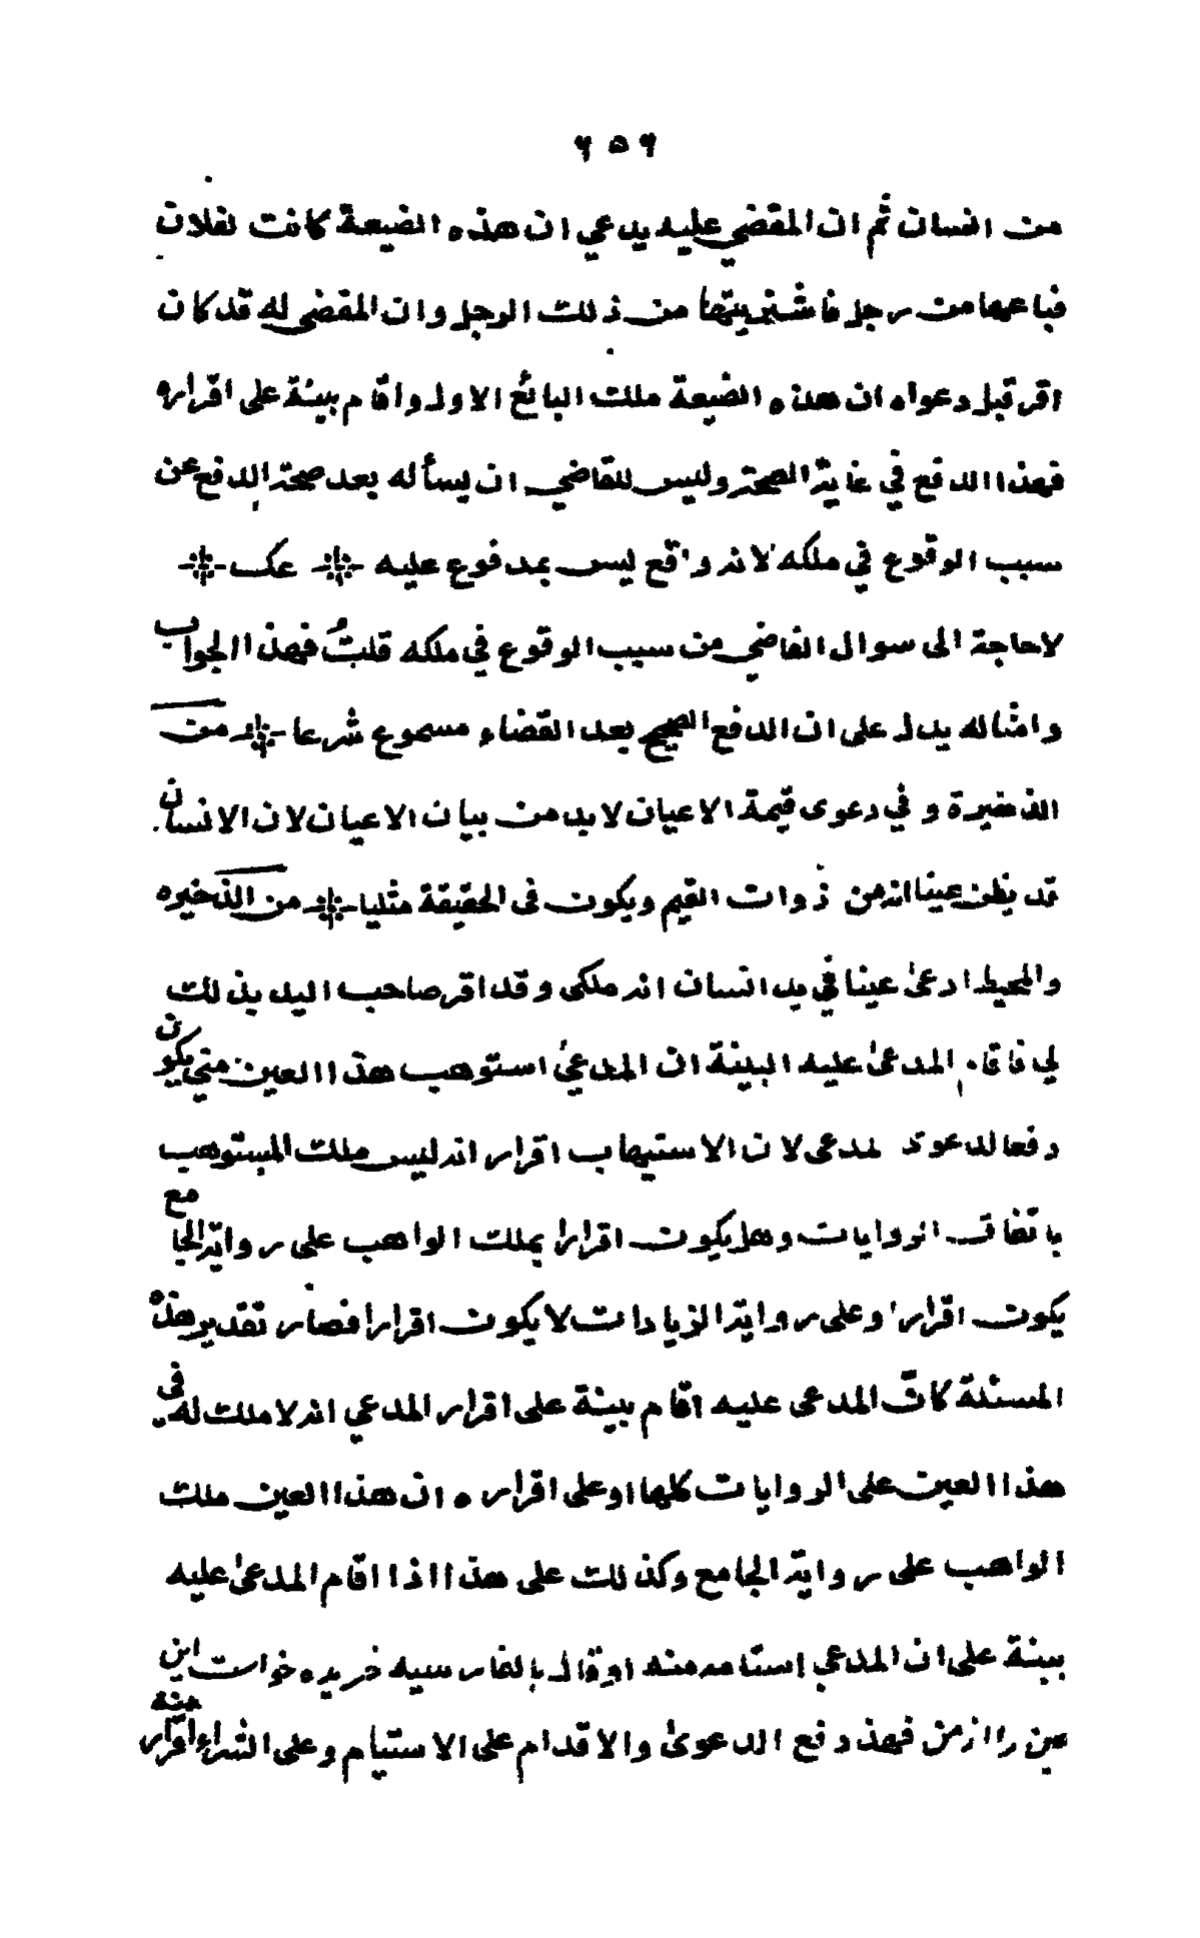 ٦٥٦
من انسان ثم ان المقضي عليه يدعي ان هذه الضيعة كانت لفلان
فباعها من رجل فاشتريتها من ذلك الرجل وان المقضى له قد كان
اقر قبل دعواه ان هذه الضيعة ملك البائع الاول واقام بينة على اقراره
فهذا الدفع في غاية الصحة وليس للقاضي ان يسأله بعد صحة الدفع عن
سبب الوقوع في ملكه لانه واقع ليس بمدفوع عليه عك
لاحاجة الى سوال القاضي من سبب الوقوع في ملكه قلتُ فهذا الجواب
وامثاله يدل على ان الدفع الصحيح بعد القضاء مسموع شرعا من
الذخيرة و في دعوى قيمة الاعيان لابد من بيان الاعيان لان الانسان
قد يظن عينا انه من ذوات القيم ويكون فى الحقيقة مثليا من الذخيره
والمحيط ادعى عينا في يد انسان انه ملكى وقد اقر صاحب اليد بذلك
لي فاقام المدعى عليه البينة ان المدعي استوهب هذا العين متى يكون
دفعا لدعوى المدعى لان الاستيهاب اقرار انه ليس ملك المستوهب
باتفاق الروايات وهل يكون اقرارا بملك الواهب على رواية الجامع
يكون اقرارا وعلى رواية الزيادات لا يكون اقرارا فصار تقدير هذه
المسئلة كانّ المدعى عليه اقام بينة على اقرار المدعي انه لا ملك له فى
هذا العين على الروايات كلها او على اقراره ان هذا العين ملك
الواهب على رواية الجامع وكذلك على هذا اذا اقام المدعى عليه
بينة على ان المدعي إستامه منه اوقال بالفارسيه خريده خواست اين
عين را از من فهذ دفع الدعوى والاقدام على الاستيام وعلى الشراء اقرار منه